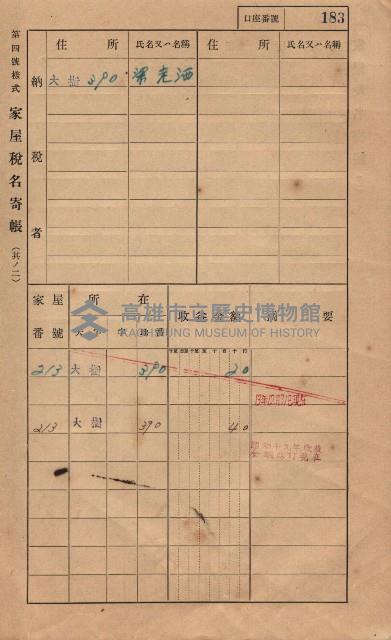 口座番號 183
第四號樣式 家屋稅名寄帳 (其ノ二)
納稅者
住所 氏名又ハ名稱 住所 氏名又ハ名稱
大樹 390
家屋番號 所在 收益金額 摘要
大字 字 地番
高雄市立歷史博物館
KAOHSIUNG MUSEUM OF HISTORY
213 大樹 390 20
213 大樹 390 40